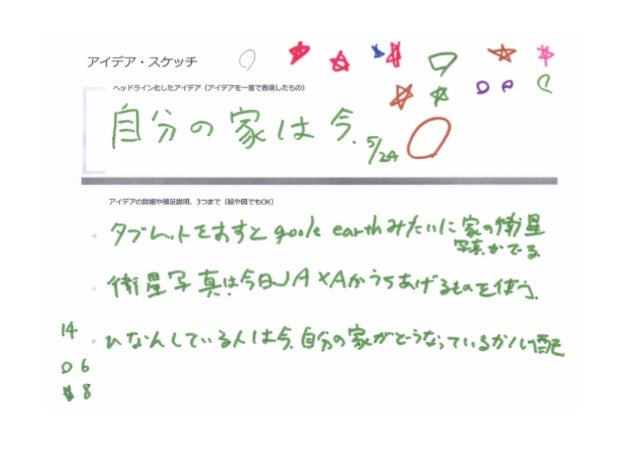 アイデア・スケッチ
ヘッドライン化したアイデア（アイデアを一言で表現したもの）
自分の家は今.
5/24
アイデアの詳細や補足説明、3つまで（絵や図でもOK）
・タブレットをおすと goole earthみたいに 家の衛星
写真がでる
・衛星写真は今日JAXAがうちあげるものを使う.
・ひなんしている人は今、自分の家がどうなっているか心配
14
○ 6
★ 8